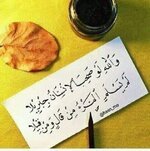 والله لو صحب الإنسان جبريلا
لم يسلم المرء من قال ومن قيلا